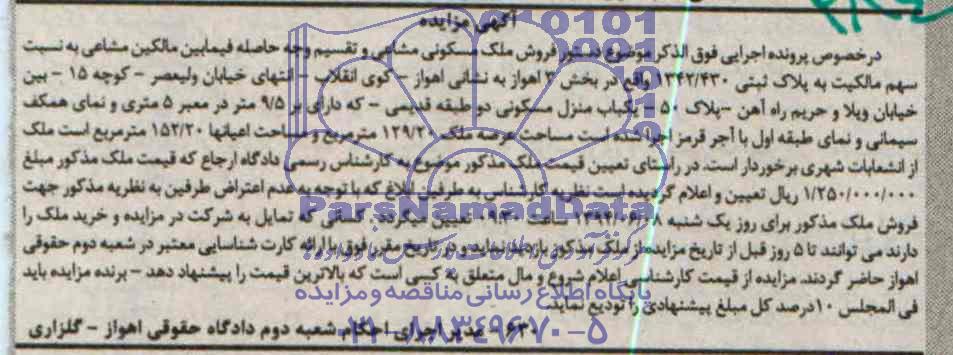 آگهی مزایده
در خصوص پرونده اجرایی فوق الذکر موضوع دستور فروش ملک مسکونی مشاعی و تقسیم وجه حاصله فیمابین مالکین مشاعی به نسبت
سهم مالکیت به پلاک ثبتی ۱۳۴۲/۴۳۰ واقع در بخش ۳ اهواز به نشانی اهواز - کوی انقلاب - انتهای خیابان ولیعصر - کوچه ۱۵ - بین
خیابان ویلا و حریم راه آهن - پلاک ۵۰ - یکباب منزل مسکونی دو طبقه قدیمی - که دارای بر ۹/۵ متر در معبر ۵ متری و نمای همکف
سیمانی و نمای طبقه اول با آجر قرمز اجرا شده است مساحت عرصه ملک ۱۳۹/۲۰ مترمربع و مساحت اعیانها ۱۵۲/۲۰ مترمربع است ملک
از انشعابات شهری برخوردار است. در راستای تعیین قیمت ملک مذکور موضوع به کارشناس رسمی دادگاه ارجاع که قیمت ملک مذکور مبلغ
۱/۲۵۰/۰۰۰/۰۰۰ ریال تعیین و اعلام گردیده است نظریه کارشناس به طرفین ابلاغ که با توجه به عدم اعتراض طرفین به نظریه مذکور جهت
فروش ملک مذکور برای روز یک شنبه ۱۳۹۴/۰۶/۰۸ ساعت ۰۹:۳۰ تعیین میگردد. کسانی که تمایل به شرکت در مزایده و خرید ملک را
دارند می توانند تا ۵ روز قبل از تاریخ مزایده از ملک مذکور بازدید نمایند و در تاریخ مقرر فوق با ارائه کارت شناسایی معتبر در شعبه دوم حقوقی
اهواز حاضر گردند. مزایده از قیمت کارشناسی اعلام شروع و مال متعلق به کسی است که بالاترین قیمت را پیشنهاد دهد - برنده مزایده باید
فی المجلس ۱۰ درصد کل مبلغ پیشنهادی را تودیع نماید.
۶۳۰ - مدیر اجرای احکام شعبه دوم دادگاه حقوقی اهواز - گلزاری
ParsNamadData
پایگاه اطلاع رسانی مناقصه و مزایده
۰۲۱-۸۸۳۴۹۶۷۰-۵